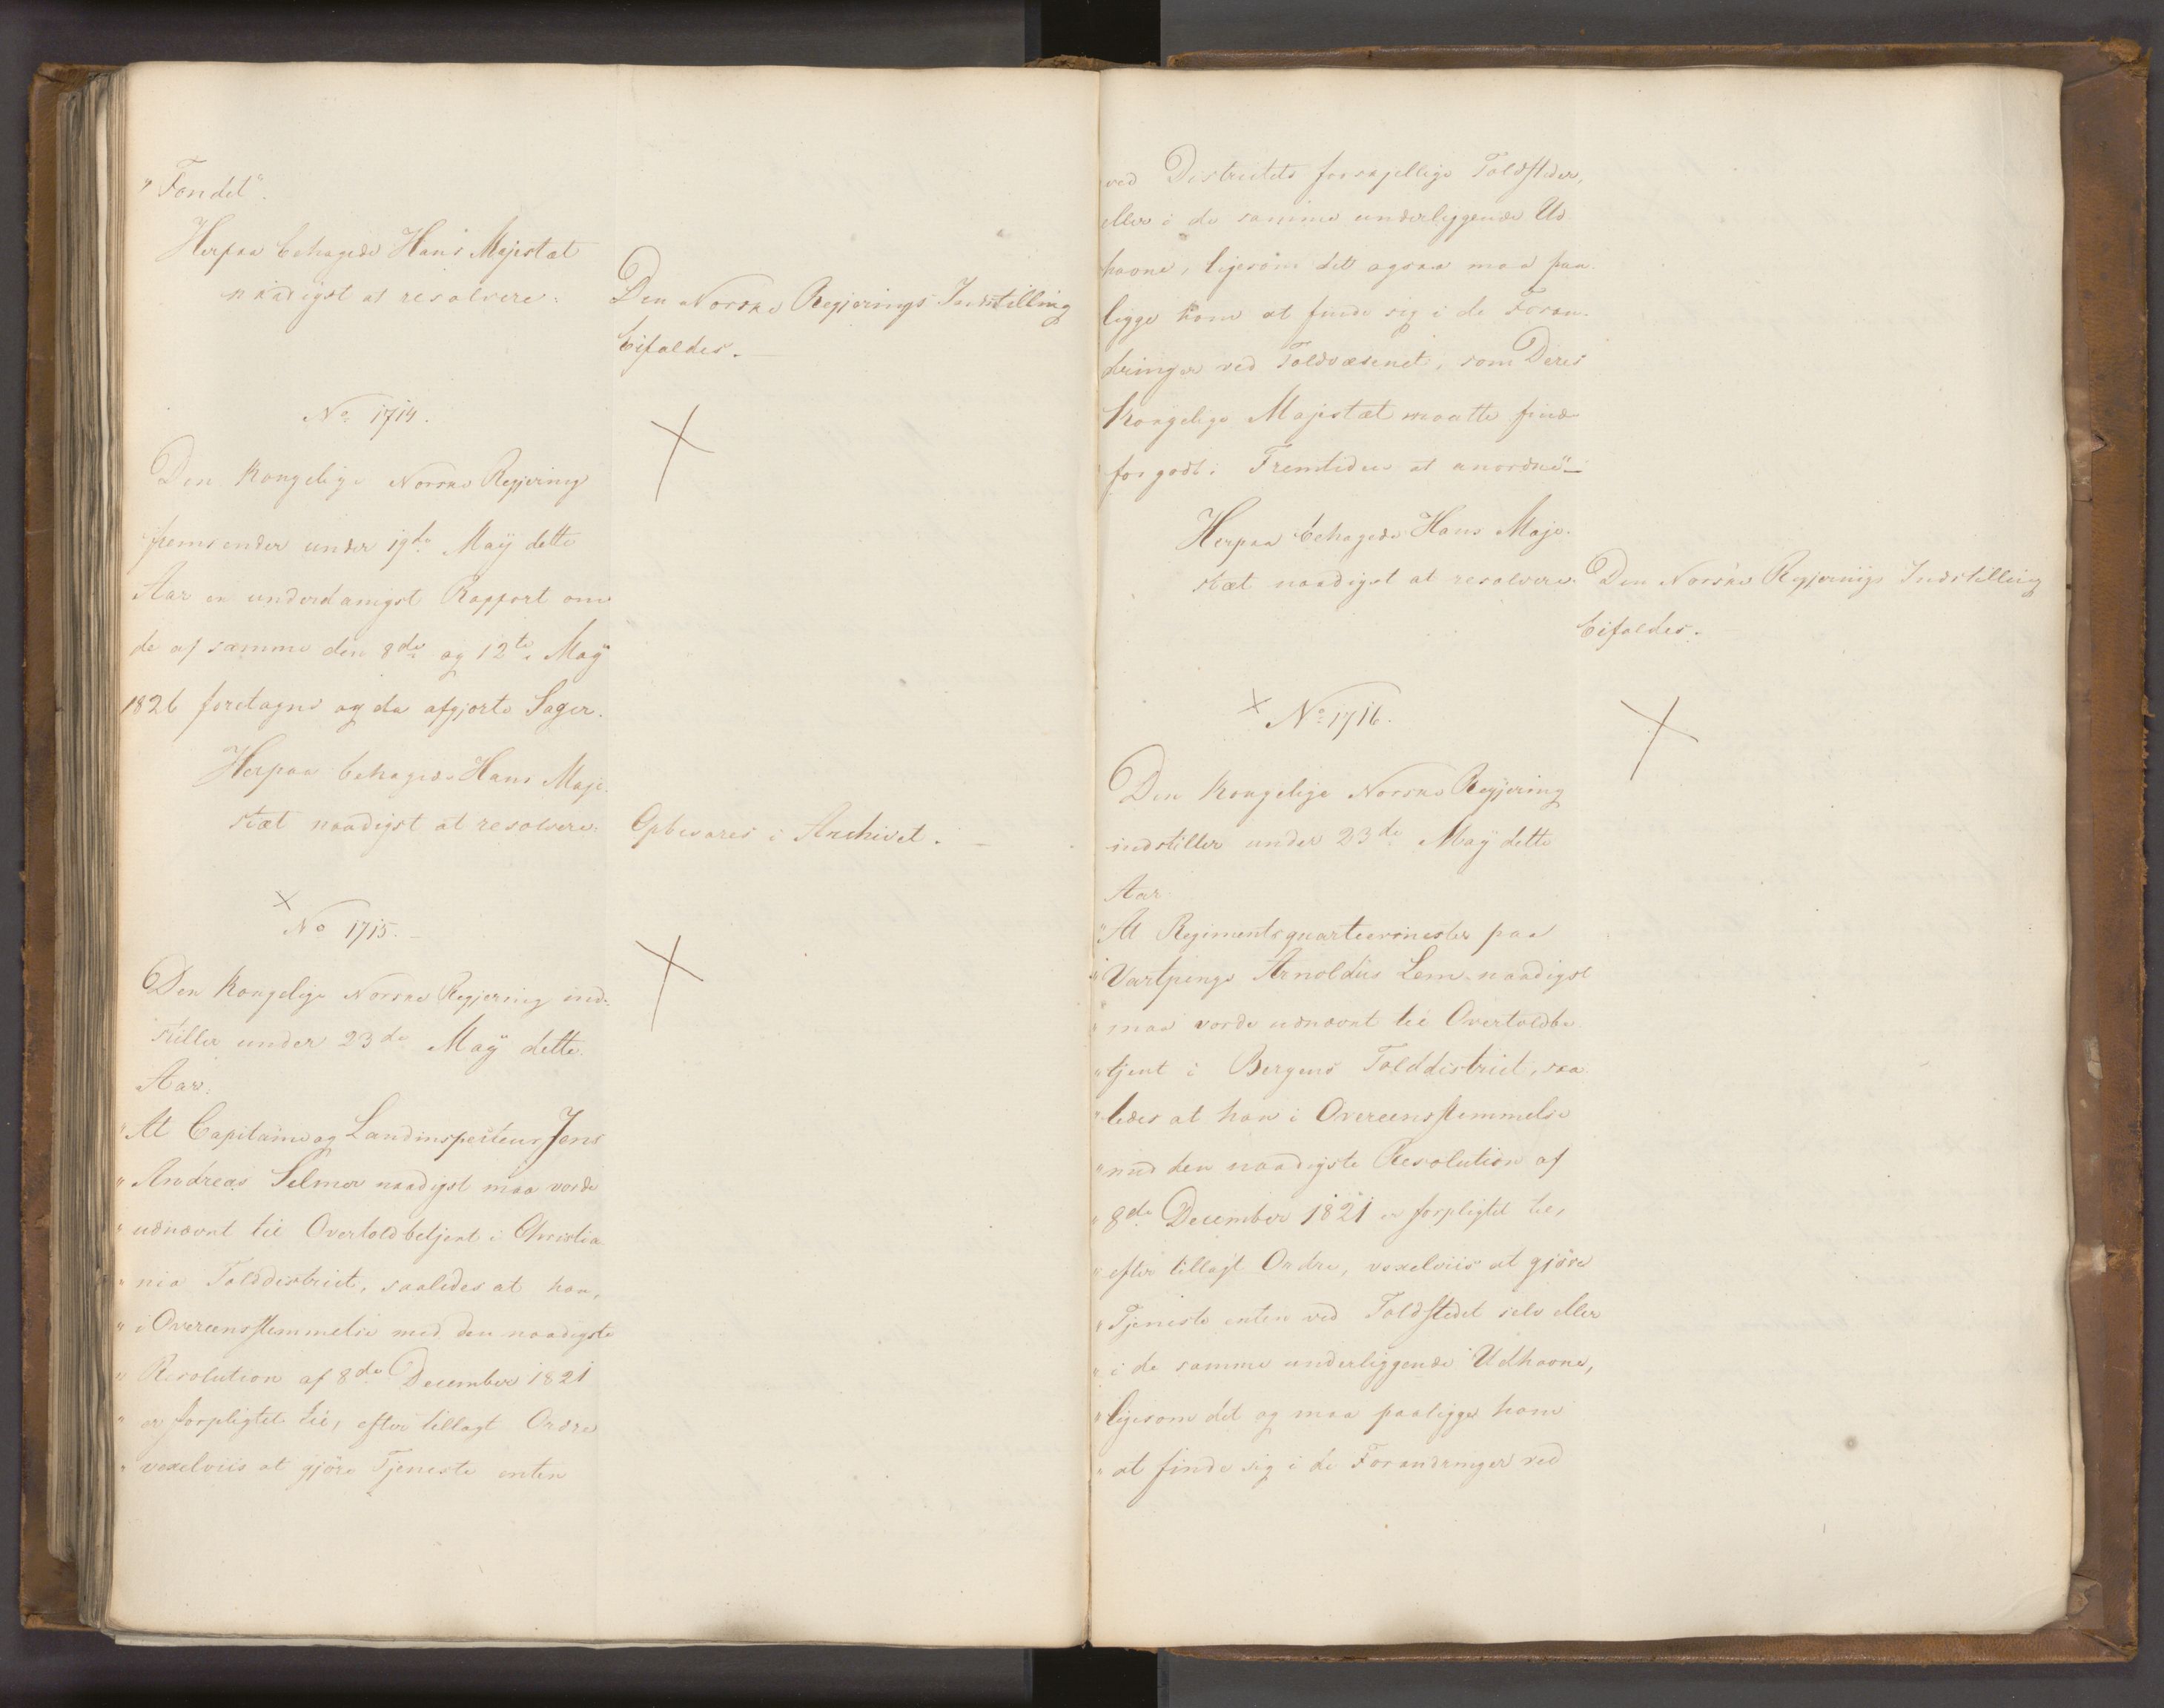 "Fondet".
Herpaa behagede Hans Majestæt
naadigst at resolvere:
Den Norske Regjerings Indstilling
bifaldes.
No 1714.
Den Kongelige Norske Regjering
fremsender under 19de May dette
Aar en underdanigst Rapport om
de af samme den 8de og 12te May
1826 foretagne og da afgjorte Sager.
Herpaa behagede Hans Maje-
stæt naadigst at resolvere:
Opbevares i Archivet.
No 1715.
Den Kongelige Norske Regjering ind-
stiller under 23de May dette
Aar:
"At Capitaine og Landinspecteur Jens
"Andreas Selmer naadigst maa vorde
"udnævnt til Overtoldbetjent i Christia
"nia Tolddistrict, saaledes at han,
"i Overeensstemmelse med den naadigste
"Resolution af 8de December 1821
"er forpligtet til, efter tillagt Ordre
"vexelviis at gjøre Tjeneste enten
ved Districtets forskjellige Toldsteder,
eller i de samme underliggende Ud
havne, ligesom det ogsaa maa paa-
ligge ham at finde sig i de Foran-
dringer ved Toldvæsenet, som Deres
Kongelige Majestæt maatte finde
for godt i Fremtiden at anordne"
Herpaa behagede Hans Maje-
stæt naadigst at resolvere:
Den Norske Regjerings Indstilling
bifaldes.
No 1716.
Den Kongelige Norske Regjering
indstiller under 23de May dette
Aar
"At Regimentsquarteermester paa
"Vartpenge Arnoldus Lem naadigst
"maa vorde udnævnt til Overtoldbe
"tjent i Bergens Tolddistrict, saa
"ledes at han i Overeensstemmelse
"med den naadigste Resolution af
"8de December 1821 er forpligtet til,
"efter tillagt Ordre, vexelviis at gjøre
"Tjeneste enten ved Toldstedet selv eller
"i de samme underliggende Udhavne,
"ligesom det og maa paaligge ham
"at finde sig i de Forandringer ved